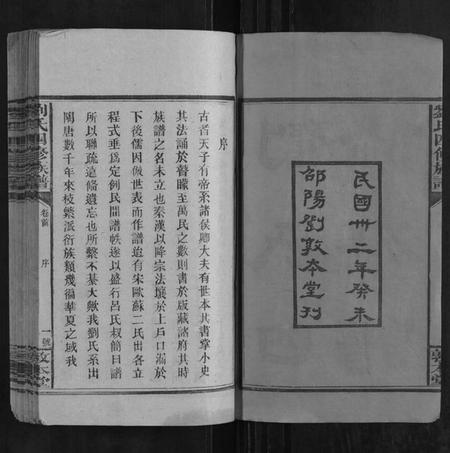 民國卅二年癸未
邵陽劉敦本堂刊
序
古者天子有帝系諸侯卿大夫有世本其書掌小史
其法誦於瞽矇至萬民之數則書於版藏諸府其時
族譜之名未立也秦漢以降宗法壞於上戶口漏於
下後儒因倣世表而作譜迨有宋歐蘇二氏出各立
程式垂爲定例民間譜帙遂以盛行呂氏叔簡曰譜
所以聯疏遠條遺忘也所繫不綦大歟我劉氏系出
關唐數千年來枝繁派衍族類幾徧華夏之域我
劉氏四修族譜
卷首
序
一號
敦本堂